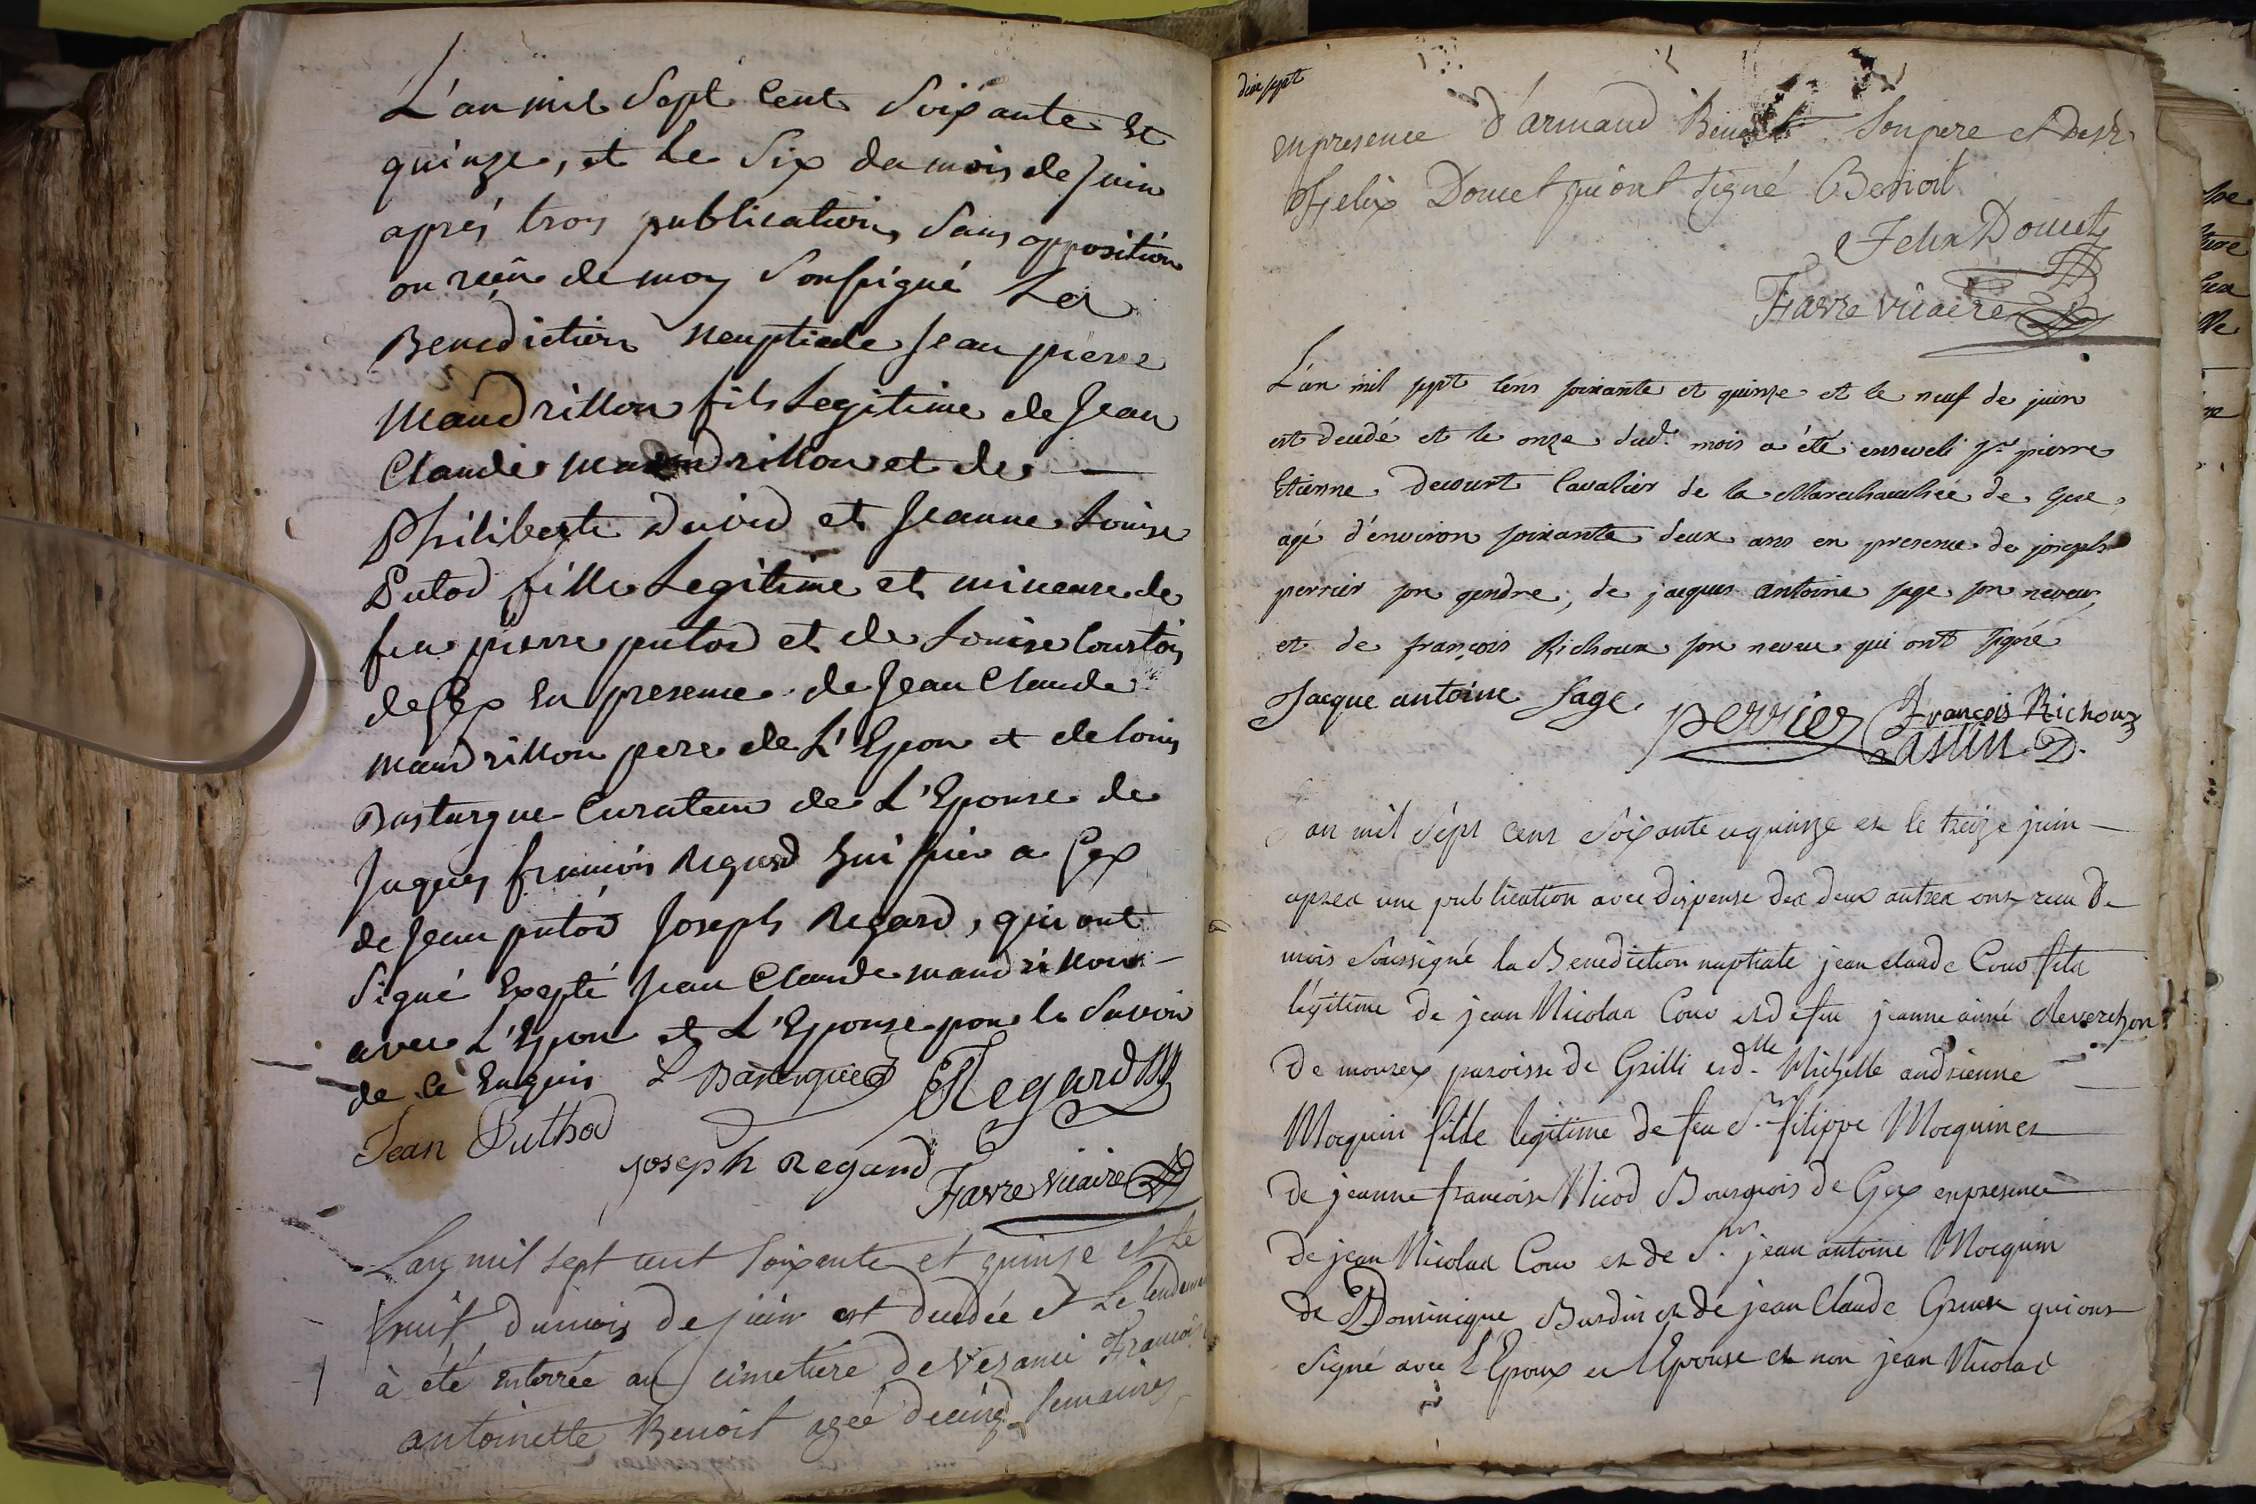 L'an mil Sept Cent Soixante Et
quinze, et Le Six du mois de Juin
après trois publications Sans opposition
on reçu de moy Soussigné La
Benediction Neuptiale Jean pierre
Mandrillon fils Legitime de Jean
Claude Mandrillon et de —
Philiberte David et Jeanne Louise
Putod fille Legitime et mineure de
feu pierre putod et de Louise Courtois
de Gex En presence de Jean Claude
Mandrillon pere de L'Epou et de Louis
Bastargue Curateur de L'Epouse de
Jaques francois Regard huissier a Gex
de Jean putod Joseph Regard, qui ont
Signé Excepté Jean Claude mandrillon —
avec L'Epou et L'Epouse pour le Savoir
de ce Enquis L Bastargue Regard
Jean Puthod
joseph Regard
Favre vicaire
L'an mil sept cent soixante et quinze et le
huit du mois de juin est decedée et Le lendemain
à été enterrée au cimetiere de Vesanci Françoise
antoinette Benoit agée de cinq semaines
dix sept
en presence d'armand Benoit Son pere et de Sr
Felix Doucet qui ont signé Benoit
Felix Doucet
Favre vicaire
L'an mil sept cens soixante et quinze et le neuf de juin
est decedé et le onze dud. mois a été enseveli Sr pierre
Etienne Decourt Cavalier de la Marechaussée de Gex
agé d'environ soixante deux ans en presence de joseph
perrier son gendre, de jacques antoine sage son neveu,
et de françois Richoux son neveu qui ont signé
Jacque antoine Sage perrier François Richoux
Castin D.
an mil Sept cens Soixante et quinze et le treize juin —
apres une publication avec dispense des deux autres ont recu de
mois Soussigné la Benediction nuptiale jean claude Couo fils
légitime de jean Nicolas Couo et defeu jeanne aimé Reverchon
de mourex paroisse de Grilli et dlle Michelle andrienne
Mocquin fille legitime de feu Sr filippe Mocquin et
de jeanne francoise Nicod Bourgeois de Gex en presence
de jean Nicolas Couo et de Sr jean antoine Mocquin
de Dominique Burdin et de jean Claude Gruex qui ont
Signé avec L'Epoux et l'Epouse et non jean Nicolas